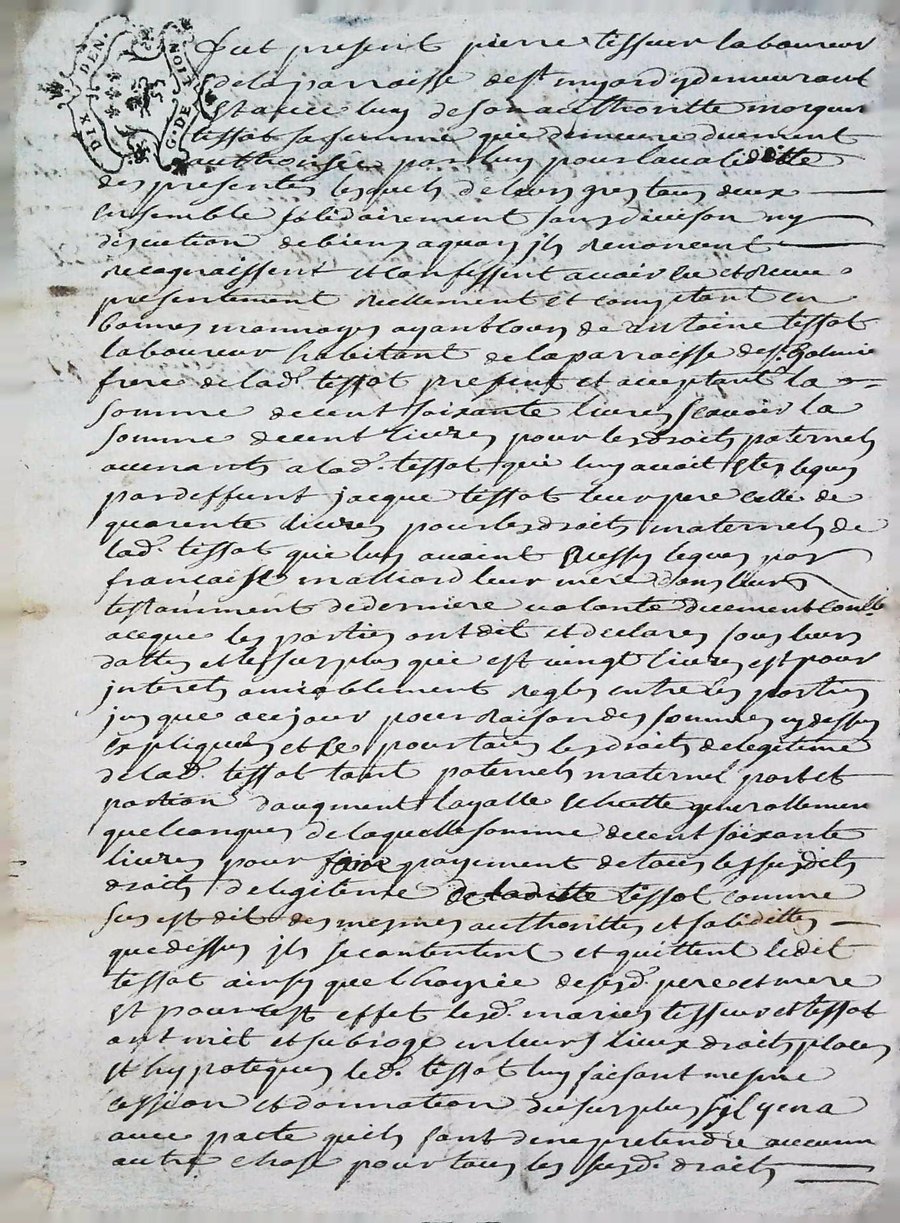 DIX DEN.
G. DE LION
fut present pierre tessier laboureur
de la parroisse de st myard y demeurant
et avec luy de son authoritte
tessot sa femme que demeure duement
authorisée par luy pour la validitte
des presentes lesquels de leurs gres tous deux
ensemble solidairement sans divison ny
discution de biens a quoy ils renoncent
recognaissent et confessent avoir eu et receu
presentement reellement et comptant en
bonnes monnoyes ayant cours de antoine tessot
laboureur habitant de la parroisse de st Galmie
frere de lad. tessot present et acceptant la
somme de cent soixante livres scavoir la
somme de cent livres pour les droits paternels
avenants a lad. tessot qui luy avoit estes legues
par deffunt jacque tessot leur pere celle de
quarente livres pour les droits maternels de
lad. tessot que luy avoint aussy legues par
francaise malliard leur mere dans leurs
testamment de derniere volonte duement
aceque les parties ont dit et declares sous leurs
dattes et le surplus que est vingt livres est pour
interets amiablement regles entre les parties
jusque ace jour pour raison des sommes cy dessus
expliquees et ce pour tous les droits de legitime
de lad. tessot tant paternels maternel part et
portion d'augment layalle echutte generallement
quelconques de laquelle somme de cent soixante
livres pour faire payement de tous les susdits
droits de legitime de ladette tessot comme
sus est dit des mesmes authorittes et solidittes
que dessus ils se contentent et quittent ledit
tessot ainsy que l'hoyrie de sesd. pere et mere
et pour cest effet lesd. maries tessier et tessot
ont mit et subroge en leurs lieux droits places
et hypoteques led. tessot luy faisant mesme
cession et donnation du surplus s'il y en a
avec pacte quils sont de ne pretendre aucune
autre chose pour tous les susd. droits